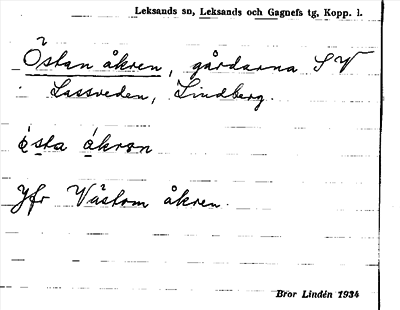 Leksands sn, Leksands och Gagnefs tg, Kopp. l.
Östan åkren, gårdarna SV
Lassveden, Lindberg.
ö́sta ákron
Jfr Västom åkren.
Bror Lindén 1934